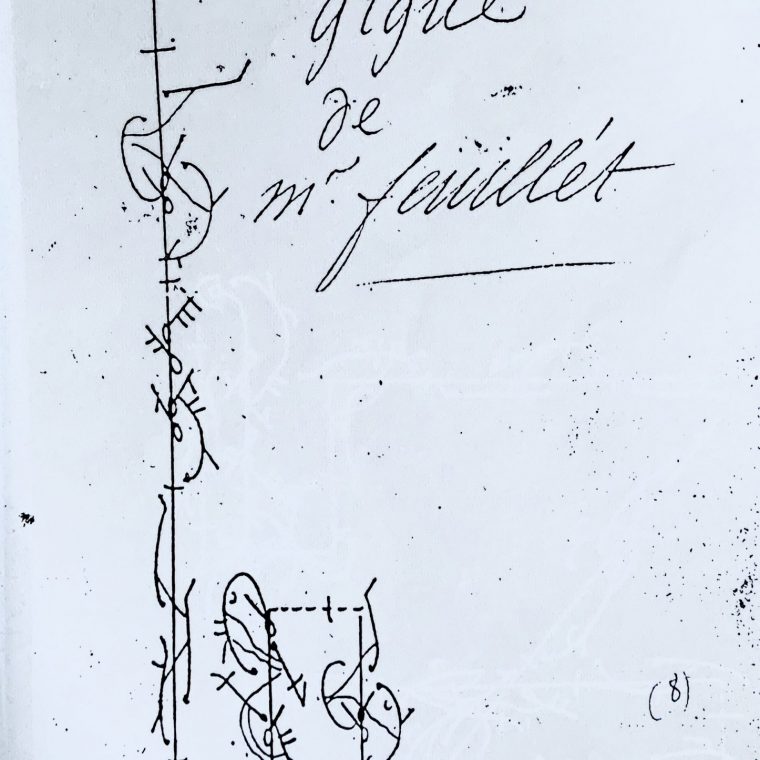 gigue
de
mr. feüillét
(8)